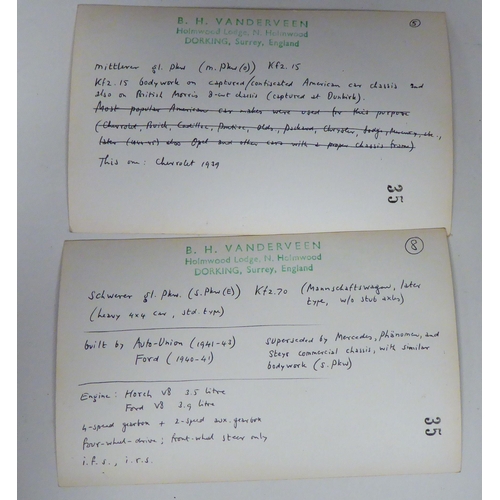 B. H. VANDERVEEN
Holmwood Lodge, N. Holmwood
DORKING, Surrey, England
mittlerer gl. Pkw (m. Pkw (o)) Kfz. 15
Kfz. 15 bodywork on captured/confiscated American car chassis and
also on British Morris 8-cwt chassis (captured at Dunkirk).
Most popular American car makes were used for this purpose
(Chevrolet, Buick, Cadillac, Pontiac, Olds, Packard, Chrysler, Dodge, etc.,
later also Opel and other cars with a proper chassis frame)
This one: Chevrolet 1939
35
B. H. VANDERVEEN
Holmwood Lodge, N. Holmwood
DORKING, Surrey, England
8
Schwerer gl. Pkw. (s. Pkw (E)) Kfz. 70 (Mannschaftswagen, later
(heavy 4x4 car, std. type) type, w/o stub axles)
built by Auto-Union (1941-43) superseded by Mercedes, Phänomen, and
Ford (1940-41) Steyr commercial chassis, with similar
bodywork (s. Pkw)
Engine: Horch V8 3.5 litre
Ford V8 3.9 litre
4-speed gearbox + 2-speed aux. gearbox
four-wheel-drive; front-wheel steer only
i.f.s., i.r.s.
35